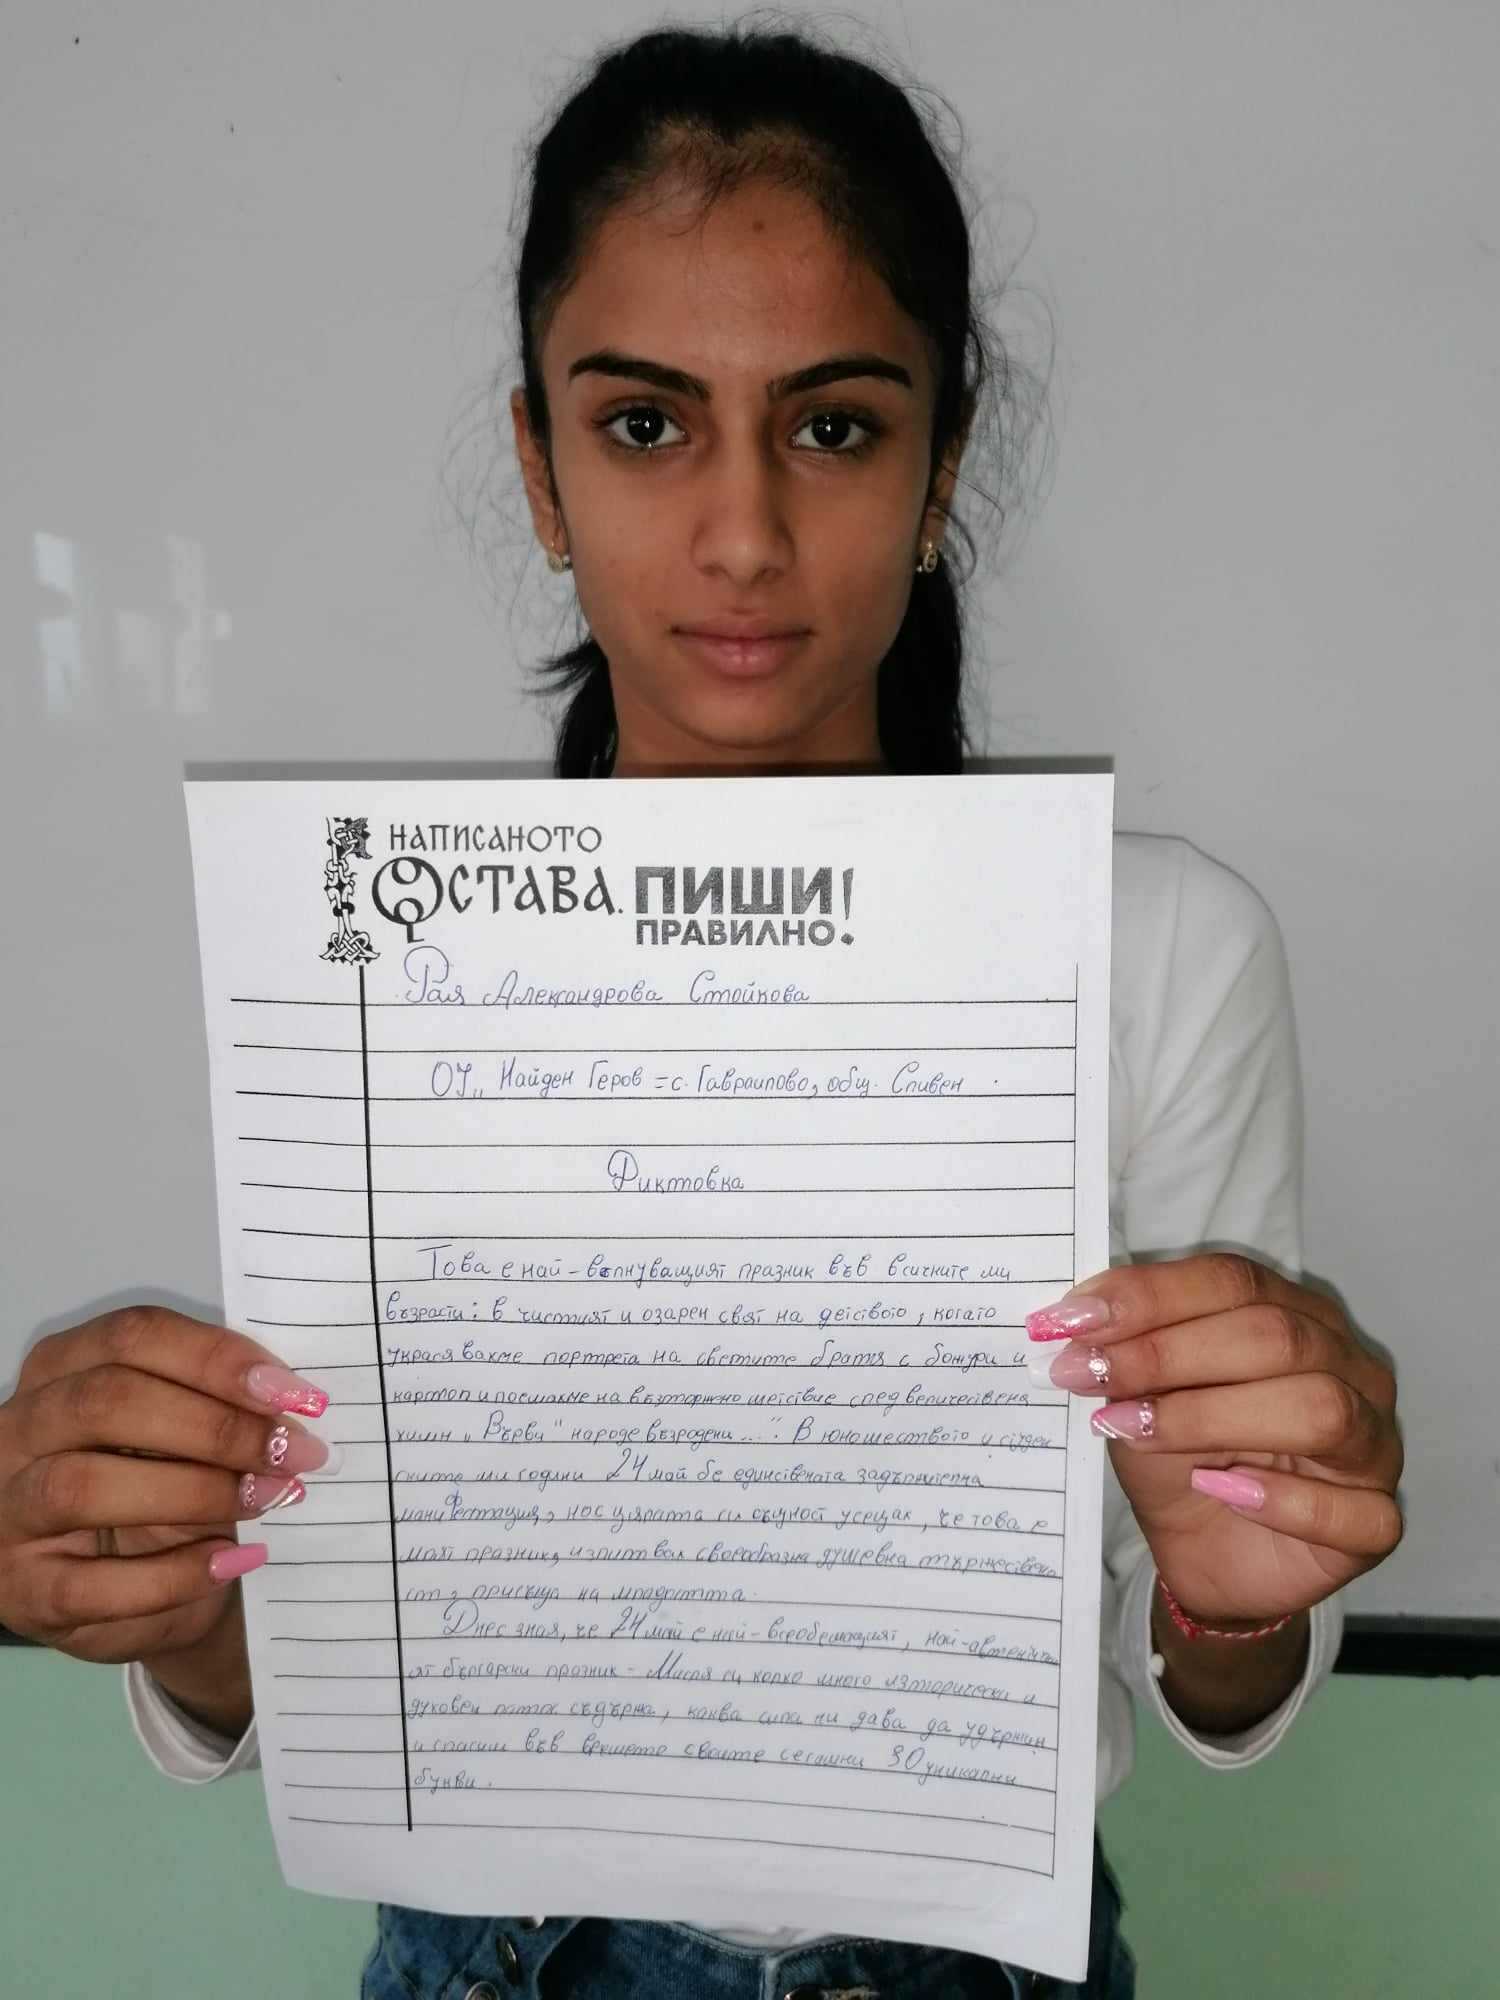 НАПИСАНОТО
ОСТАВА. ПИШИ
ПРАВИЛНО!
Рая Александрова Стойкова
ОУ „ Найден Геров = с. Гавраилово, общ. Сливен
Диктовка
Това е най - вълнуващият празник във всичките ми
възрасти: в чистият и озарен свят на детството, когато
украсявахме портрета на светите братя с божури и
картоп и посмахме на възторжно шествие след величествена
химн „ Върви " народе възродени ... ". В юношеството и студен
ските ми години 24 май бе единствената задължителна
манифестация, но с цялата си същност усещах, че това е
моят празник, изпитвах своеобразна душевна тържествено
ст, присъща на младостта.
Днес зная, че 24 май е най - всеобемащият, най - автентичн
ят български празник - Мисля си колко много изторически и
духовен паток съдържа, каква сила ни дава да удържим
и спасим във времето своите сегашни 30 уникални
букви.